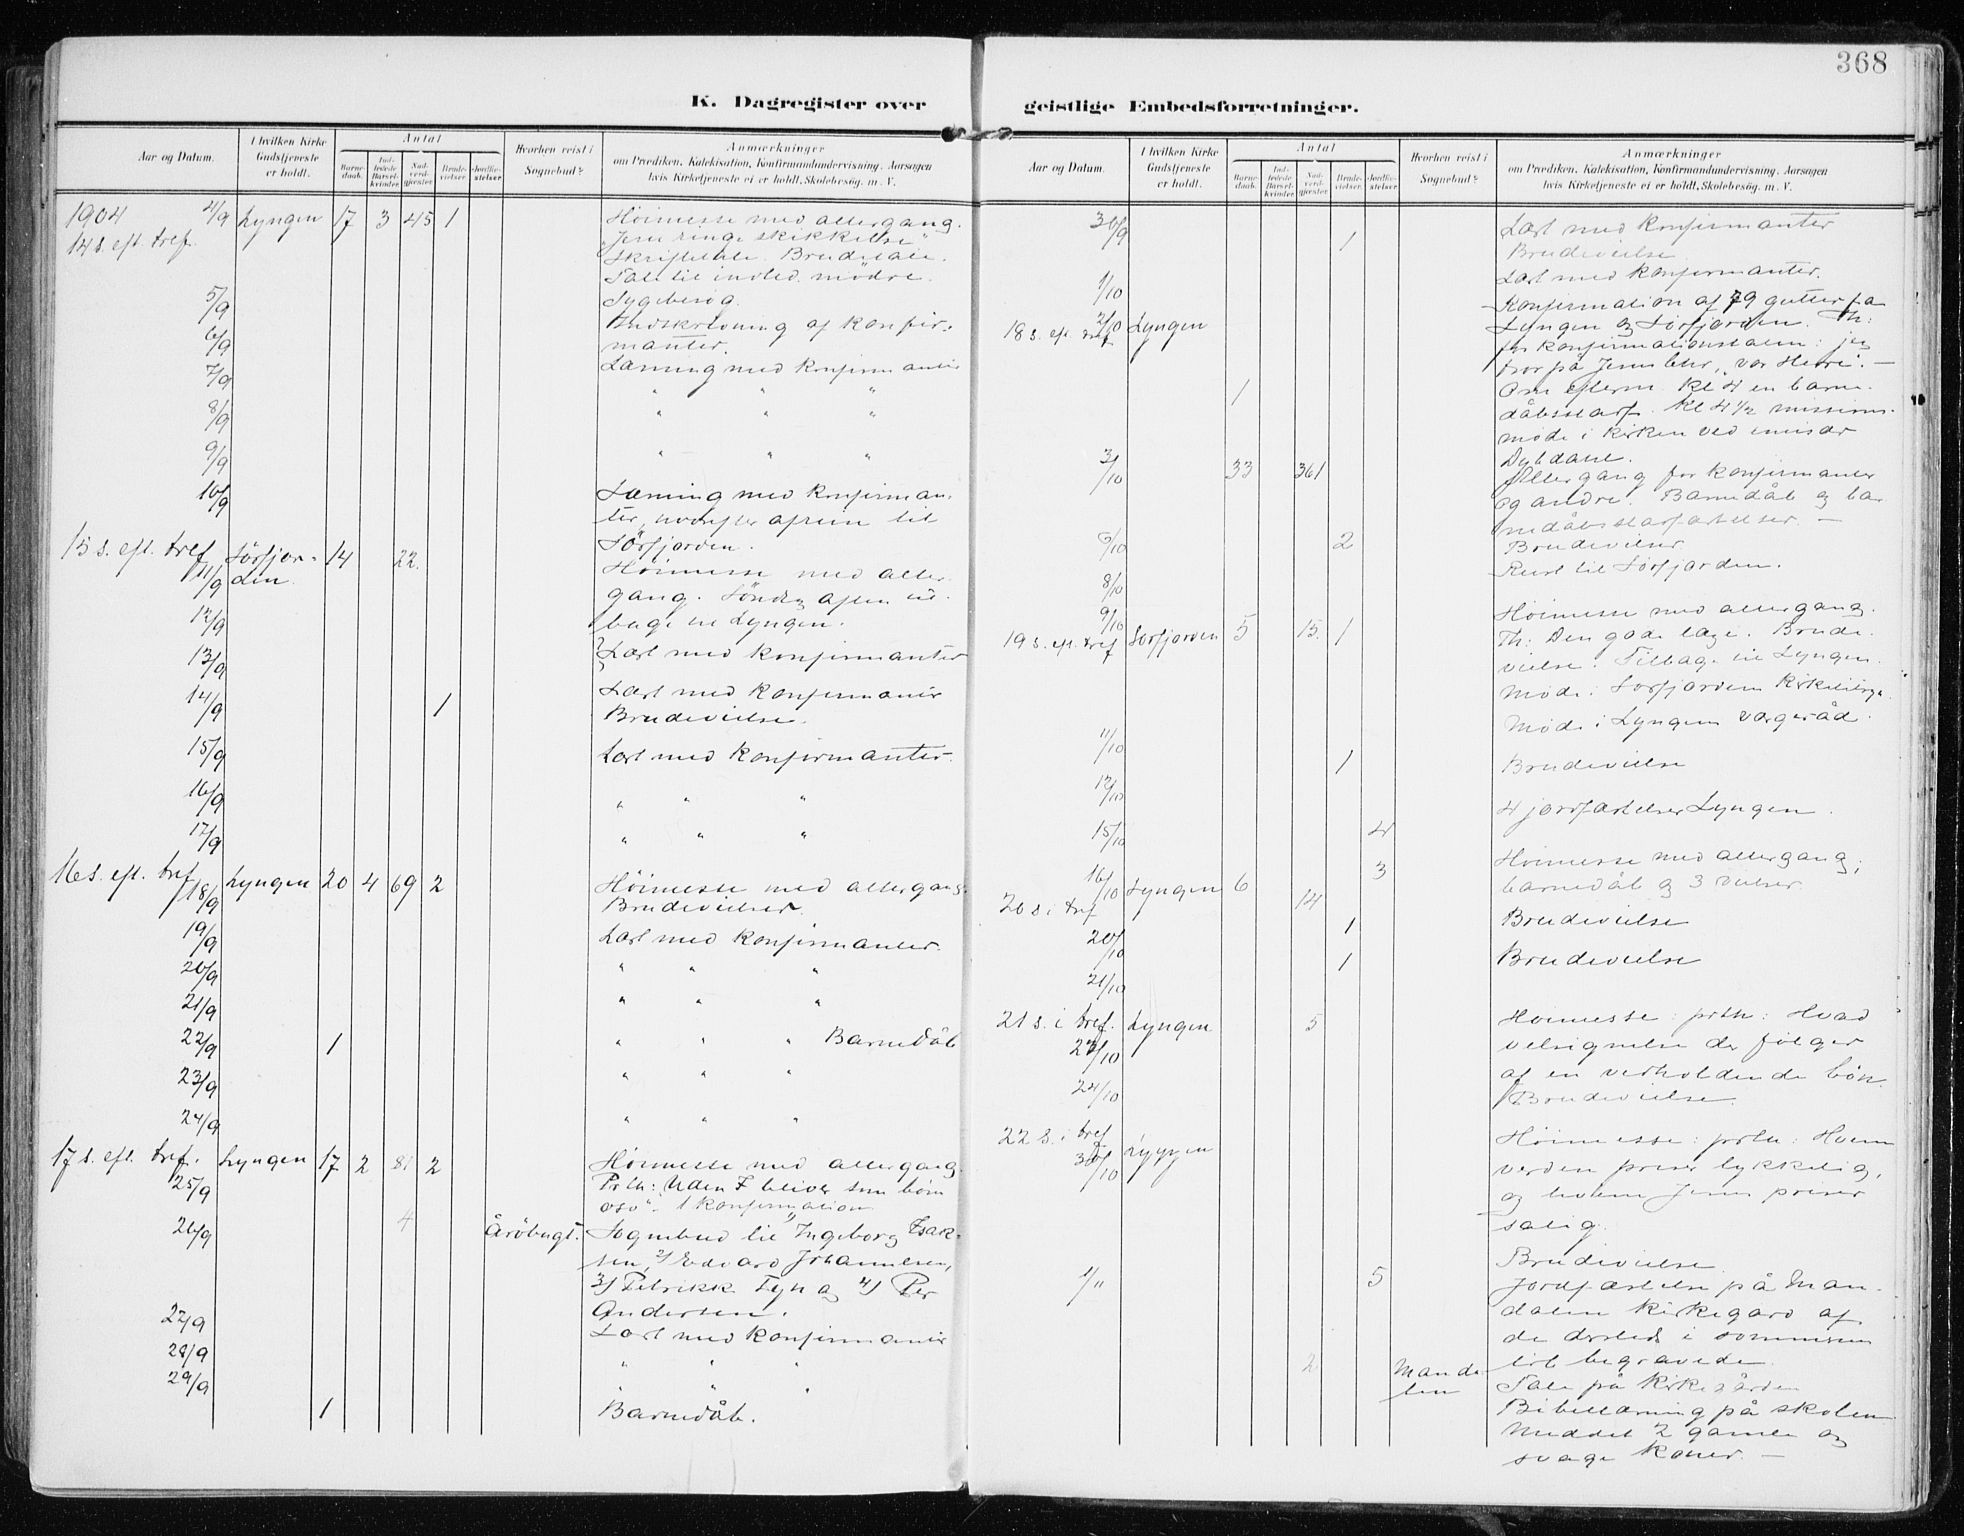 368
K. Dagregister over
geistlige Embedsforretninger.
Aar og Datum.
I hvilken Kirke Gudstjeneste er holdt.
Antal
Barne-daab.
Ind-ledede Barsel-kvinder.
Nad-verd-gjester.
Brude-vielser.
Jordfæ-stelser.
Hvorhen reist i Sognebud?
Anmærkninger
om Prædiken, Katekisation, Konfirmandundervisning, Aarsagen
hvis Kirketjeneste ei er holdt, Skolebesøg. m. V.
1904 4/9 Lyngen 17 3 45 1 Høimesse med altergang.
14 s. eft. tref. "Jesu ringe skikkelse"
Skriftetale. Brudetale.
Tale til indled. mødre.
5/9 Sygebesøg.
6/9 Indskrivning af konfir-
manter.
7/9 Læsning med konfirmanter
8/9 " " "
9/9 " " "
10/9 Læsning med konfirman-
ter, hvorefter afreise til
Sörfjorden.
15 s. eft. tref 11/9 Sörfjor-
den. 14 22. Høimesse med alter-
gang. Söndag aften til-
bage til Lyngen.
12/9
13/9 Læst med konfirmanter
14/9 1 Læst med konfirmanter
Brudevielse.
15/9 Læst med konfirmanter.
16/9 " " "
17/9 " " "
16 s. eft. tref 18/9 Lyngen 20 4 69 2 Høimesse med altergang.
Brudevielser.
19/9 Læst med konfirmanter.
20/9 " " "
21/9 " " "
22/9 1 " " " Barnedåb
23/9 " " "
24/9 " " "
17 s. eft. tref. 25/9 Lyngen 17 2 81 2 Høimesse med altergang.
Prth: Uden I bliver som børn
osv". 1 konfirmation
26/9 4 Årøbugt. Sognebud til 1) Ingeborg Isak-
sen, 2) Edvard Johannesen,
3) Petrikk Fyn og 4) Per
Andersen.
27/9 Læst med konfirmanter
28/9 " " "
29/9 " " "
1 Barnedåb.
Aar og Datum.
I hvilken Kirke Gudstjeneste er holdt.
Antal
Barne-daab.
Ind-ledede Barsel-kvinder.
Nad-verd-gjester.
Brude-vielser.
Jordfæ-stelser.
Hvorhen reist i Sognebud?
Anmærkninger
om Prædiken, Katekisation, Konfirmandundervisning, Aarsagen
hvis Kirketjeneste ei er holdt, Skolebesøg. m. V.
30/9 Læst med konfirmanter
1 Brudevielse
1/10 Læst med konfirmanter.
18 s. eft. tref 2/10 Lyngen Konfirmation af 79 gutter fra
Lyngen og Sörfjorden. Th:
for konfirmationstalen: jeg
tror på Jesus Chr., vor Herre. -
1 Om efterm. Kl 4 en barne-
dåbsstadf. Kl 4½ missions-
møde i kirken ved emissær
Dybdahl.
3/10 33 361 Altergang for konfirmanter
og andre. Barnedåb og bar
nedåbsstadfæstelser. -
2 Brudevielser.
8/10 Reist til Sörfjorden.
19 s. eft. tref 9/10 Sörfjorden 5 15. 1 Høimesse med altergang.
Th: Den gode læge. Brude-
vielse. Tilbage til Lyngen.
Møde i Sörfjordens kirketilsyn.
11/10 Møde i Lyngens vergeråd.
12/10 1 Brudevielse
15/10 4 4 jordfæstelser Lyngen.
20 s. i tref 16/10 Lyngen 6 14 3 Høimesse med altergang,
barnedåb og 3 vielser.
20/10 1 Brudevielse
21/10 1 Brudevielse
21 s. i tref. 23/10 Lyngen 5 Høimesse: prth: Hvad
velsignelse der følger
af en vedholdende bön.
24/10 Brudevielse.
22 s. i tref 30/10 Lyngen Høimesse: prth: Hvem
verden priser lykkelig,
og hvem Jesus priser
salig.
Brudevielse.
1/11 5 Jordfæstelse på Man-
dalen kirkegård af
de derste​ds i sommerens
löb begravede.
Tale på kirkegården
2 Manda-
len Bibellæsning på skolen
Meddelt 2 gamle og
svage koner. -